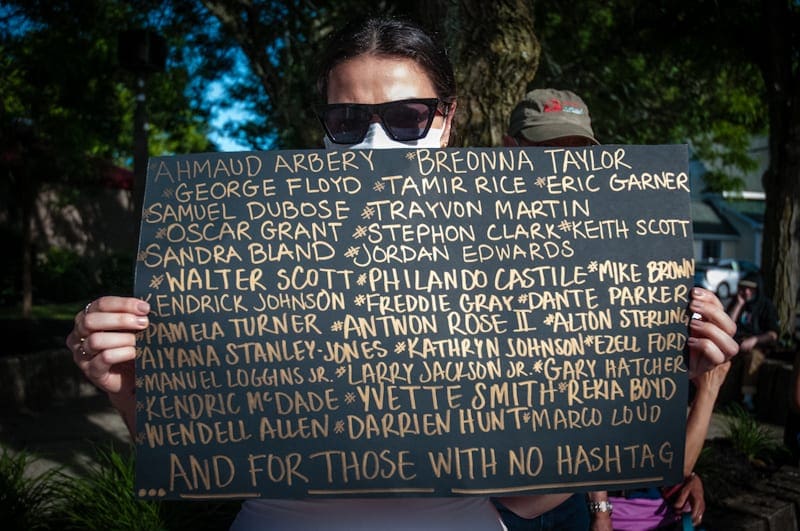 AHMAUD ARBERY #BREONNA TAYLOR
#GEORGE FLOYD #TAMIR RICE #ERIC GARNER
#SAMUEL DUBOSE #TRAYVON MARTIN
#OSCAR GRANT #STEPHON CLARK #KEITH SCOTT
#SANDRA BLAND #JORDAN EDWARDS
#WALTER SCOTT #PHILANDO CASTILE #MIKE BROWN
KENDRICK JOHNSON #FREDDIE GRAY #DANTE PARKER
#PAMELA TURNER #ANTWON ROSE II #ALTON STERLING
#AIYANA STANLEY-JONES #KATHRYN JOHNSON #EZELL FORD
#MANUEL LOGGINS JR. #LARRY JACKSON JR. #GARY HATCHER
#KENDRIC McDADE #YVETTE SMITH #REKIA BOYD
#WENDELL ALLEN #DARRIEN HUNT #MARCO LOUD
...AND FOR THOSE WITH NO HASHTAG